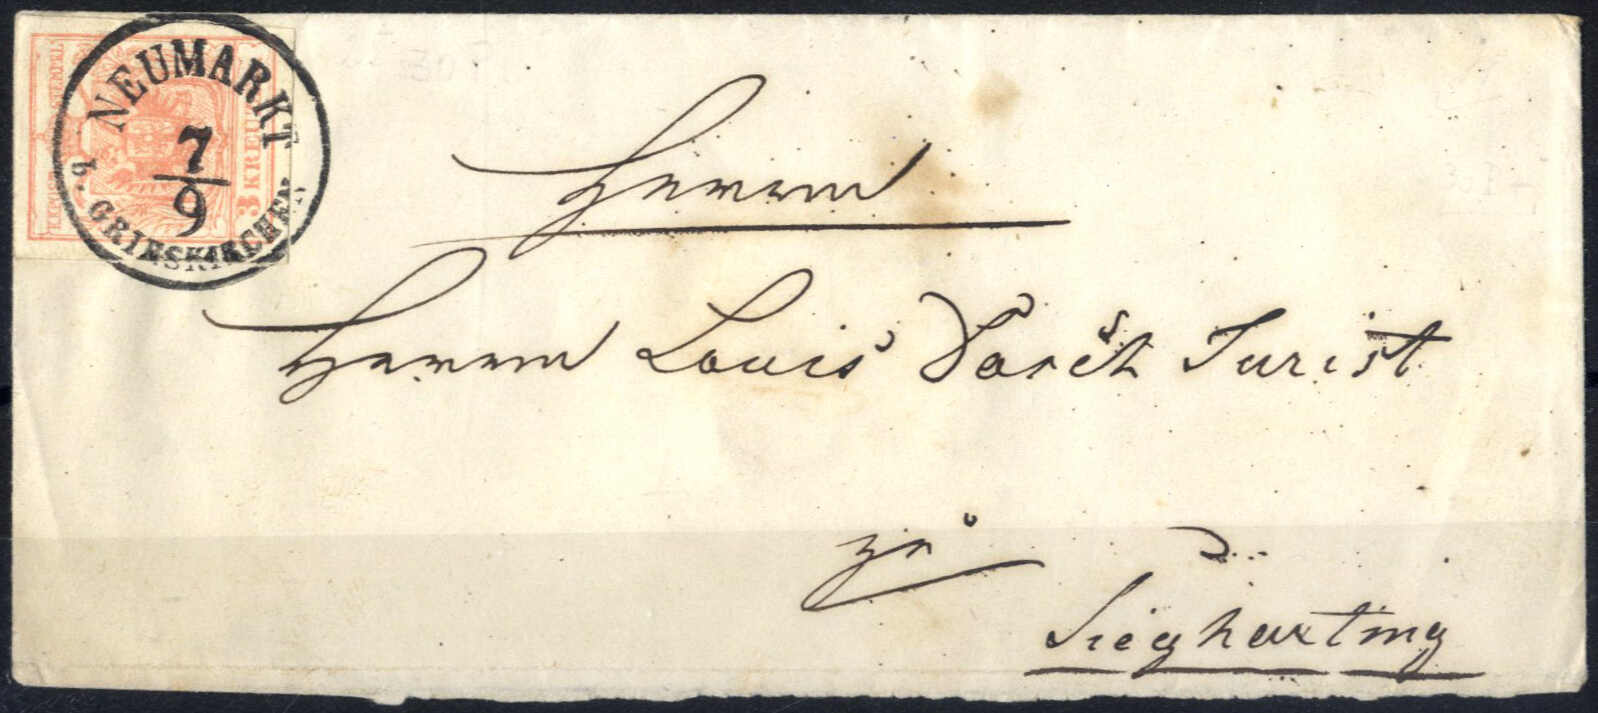 NEUMARKT
7/9
b. GRIESKIRCHEN
3 KREUZ
Herrn
Herrn Louis Jurist
zu
Siegharting